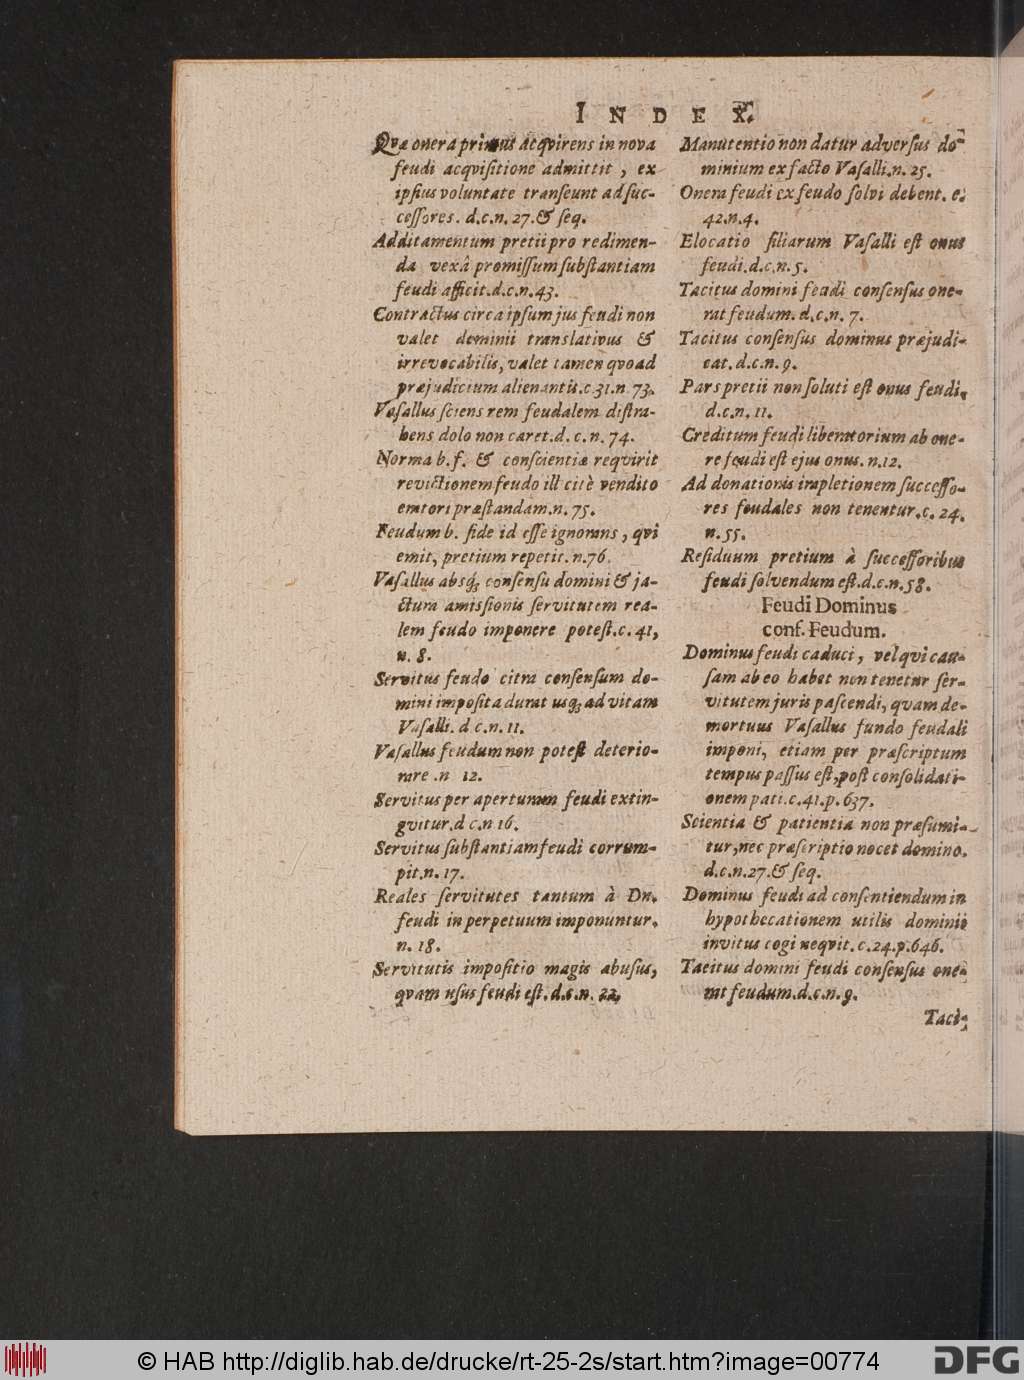 INDEX.
Qvæ onera primus acqvirens in nova
feudi acqvisitione admittit, ex
ipsius voluntate transeunt ad suc-
cessores. d.c.n. 27. & seq.
Additamentum pretii pro redimen-
da vexâ promissum substantiam
feudi afficit. d.c.n. 43.
Contractus circa ipsum jus feudi non
valet dominii translativus &
irrevocabilis, valet tamen qvoad
præjudicium alienantis. c. 31. n. 73.
Vasallus sciens rem feudalem distra-
hens dolo non caret. d. c. n. 74.
Norma b. f. & conscientiæ reqvirit
revictionem feudo illicitè vendito
emtori præstandam. n. 75.
Feudum b. fide id esse ignorans, qvi
emit, pretium repetit. n. 76.
Vasallus absq; consensu domini & ja-
ctura amissionis servitutem rea-
lem feudo imponere potest. c. 41,
n. 8.
Servitus feudo citra consensum do-
mini imposita durat usq; ad vitam
Vasalli. d c. n. 11.
Vasallus feudum non potest deterio-
rare . n 12.
Servitus per aperturam feudi extin-
gvitur. d c. n 16.
Servitus substantiam feudi corrum-
pit. n. 17.
Reales servitutes tantum à Dn.
feudi in perpetuum imponuntur.
n. 18.
Servitutis impositio magis abusus,
qvam usus feudi est. d. c. n. 22.
Manutentio non datur adversus do-
minium ex facto Vasalli. n. 25.
Onera feudi ex feudo solvi debent. c.
42. n. 4.
Elocatio filiarum Vasalli est onus
feudi. d. c. n. 5.
Tacitus domini feudi consensus one-
rat feudum. d. c. n. 7.
Tacitus consensus dominus præjudi-
cat. d. c. n. 9.
Pars pretii non soluti est onus feudi.
d. c. n. 11.
Creditum feudi liberatorium ab one-
re feudi est ejus onus. n. 12.
Ad donationis impletionem successo-
res feudales non tenentur. c. 24.
n. 55.
Residuum pretium à successoribus
feudi solvendum est. d. c. n. 58.
Feudi Dominus
conf. Feudum.
Dominus feudi caduci, vel qvi cau-
sam ab eo habet non tenetur ser-
vitutem juris pascendi, qvam de-
mortuus Vasallus fundo feudali
imponi, etiam per præscriptum
tempus passus est, post consolidati-
onem pati. c. 41. p. 637.
Scientia & patientia non præsumi-
tur, nec præscriptio nocet domino.
d. c. n. 27. & seq.
Dominus feudi ad consentiendum in
hypothecationem utilis dominii
invitus cogi neqvit. c. 24. p. 646.
Tacitus domini feudi consensus one-
rat feudum. d. c. n. 9.
Taci-
© HAB http://diglib.hab.de/drucke/rt-25-2s/start.htm?image=00774
DFG